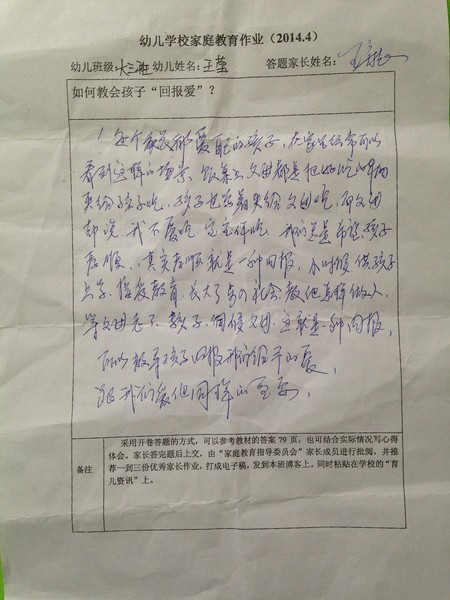 幼儿学校家庭教育作业（2014.4）
幼儿班级：大三班 幼儿姓名：王莹 答题家长姓名：
如何教会孩子“回报爱”？
每个家长都爱自己的孩子，在家里经常可以
看到这样的场景，饭桌上父母都是把好吃的
夹给孩子吃，孩子也会夹给父母吃，而父母
却说我不爱吃，宝宝你吃，我们总是希望孩子
孝顺，其实孝顺就是一种回报，小时候供孩子
上学，接受教育，长大了步入社会教他怎样做人，
等父母老了，孩子伺候父母，这就是一种回报，
所以教导孩子回报我们给予的爱，
跟我们爱他同样的重要。
备注
采用开卷答题的方式，可以参考教材的答案 79 页，也可结合实际情况写心得
体会。家长答完题后上交，由“家庭教育指导委员会”家长成员进行批阅，并推
荐一到三份优秀家长作业，打成电子稿，发到本班博客上。同时粘贴在学校的“育
儿资讯”上。